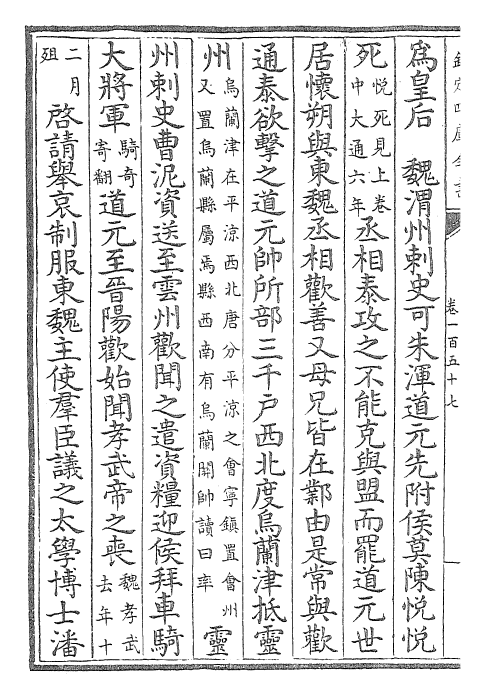 欽定四庫全書
卷一百五十七
爲皇后　魏渭州刺史可朱渾道元先附侯莫陳悅悅
死悅死見上卷中大通六年丞相泰攻之不能克與盟而罷道元世
居懷朔與東魏丞相歡善又母兄皆在鄴由是常與歡
通泰欲擊之道元帥所部三千戶西北度烏蘭津抵靈
州烏蘭津在平涼西北唐分平涼之會寧鎮置會州又置烏蘭縣屬焉縣西南有烏蘭關帥讀曰率靈
州刺史曹泥資送至雲州歡聞之遣資糧迎候拜車騎
大將軍騎奇寄翻道元至晉陽歡始聞孝武帝之喪魏孝武去年十
二月殂啓請舉哀制服東魏主使羣臣議之太學博士潘